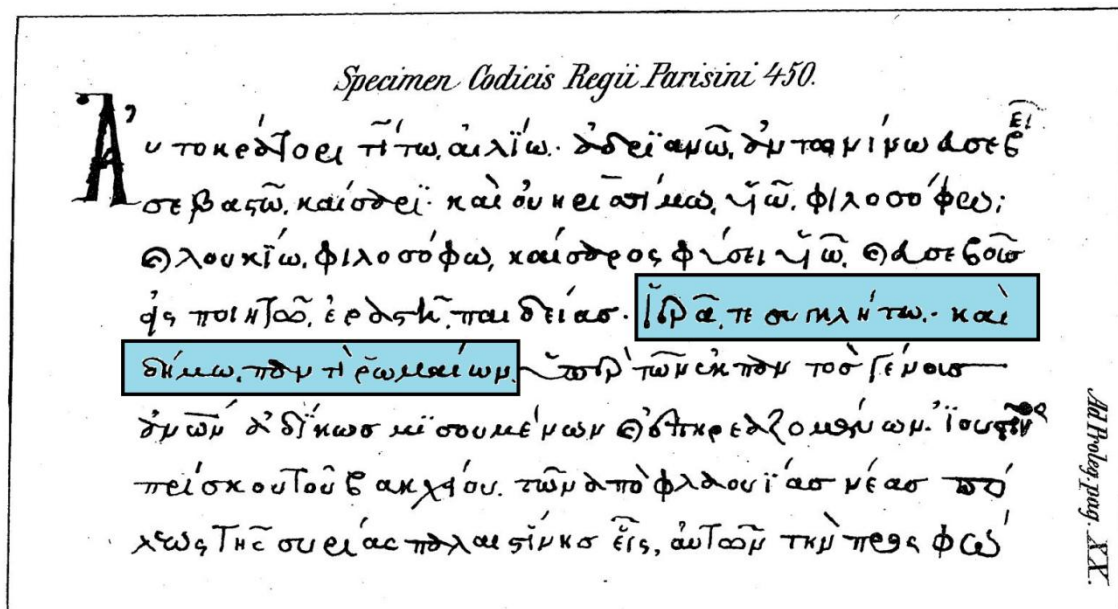 Specimen Codicis Regii Parisini 450.
Αὐτοκράτορι τίτω, αἰλΐω· ἀδρϊανῶ, ἀντωνίνω εὐσεβεῖ
σεβαστῶ, καίσαρϊ· καὶ οὐηρισσίμω, υἱῶ, φιλοσόφω;
καὶ λουκΐω, φιλοσόφω, καίσαρος φύσει υἱῶ, καὶ εὐσεβοῦσ
εἰς ποιητῶ, ἐραστῆ, παιδείασ· ἱερᾶ, τε συγκλήτω· καὶ
δήμω, παντὶ ῥωμαίων, ὑπὲρ τῶν ἐκ παντὸσ γένουσ
ἀνῶν ἀδΐκωσ μϊσουμένων καὶ ἐπηρεαζομένων. ἰουστῖνος
πρίσκου τοῦ βακχείου, τῶν ἀπὸ φλαουΐασ νέασ πό
λεως τῆς συρίας παλαιστίνησ εἷς, αὐτῶν τὴν προσφώ
Ad Proleg. pag. XX.